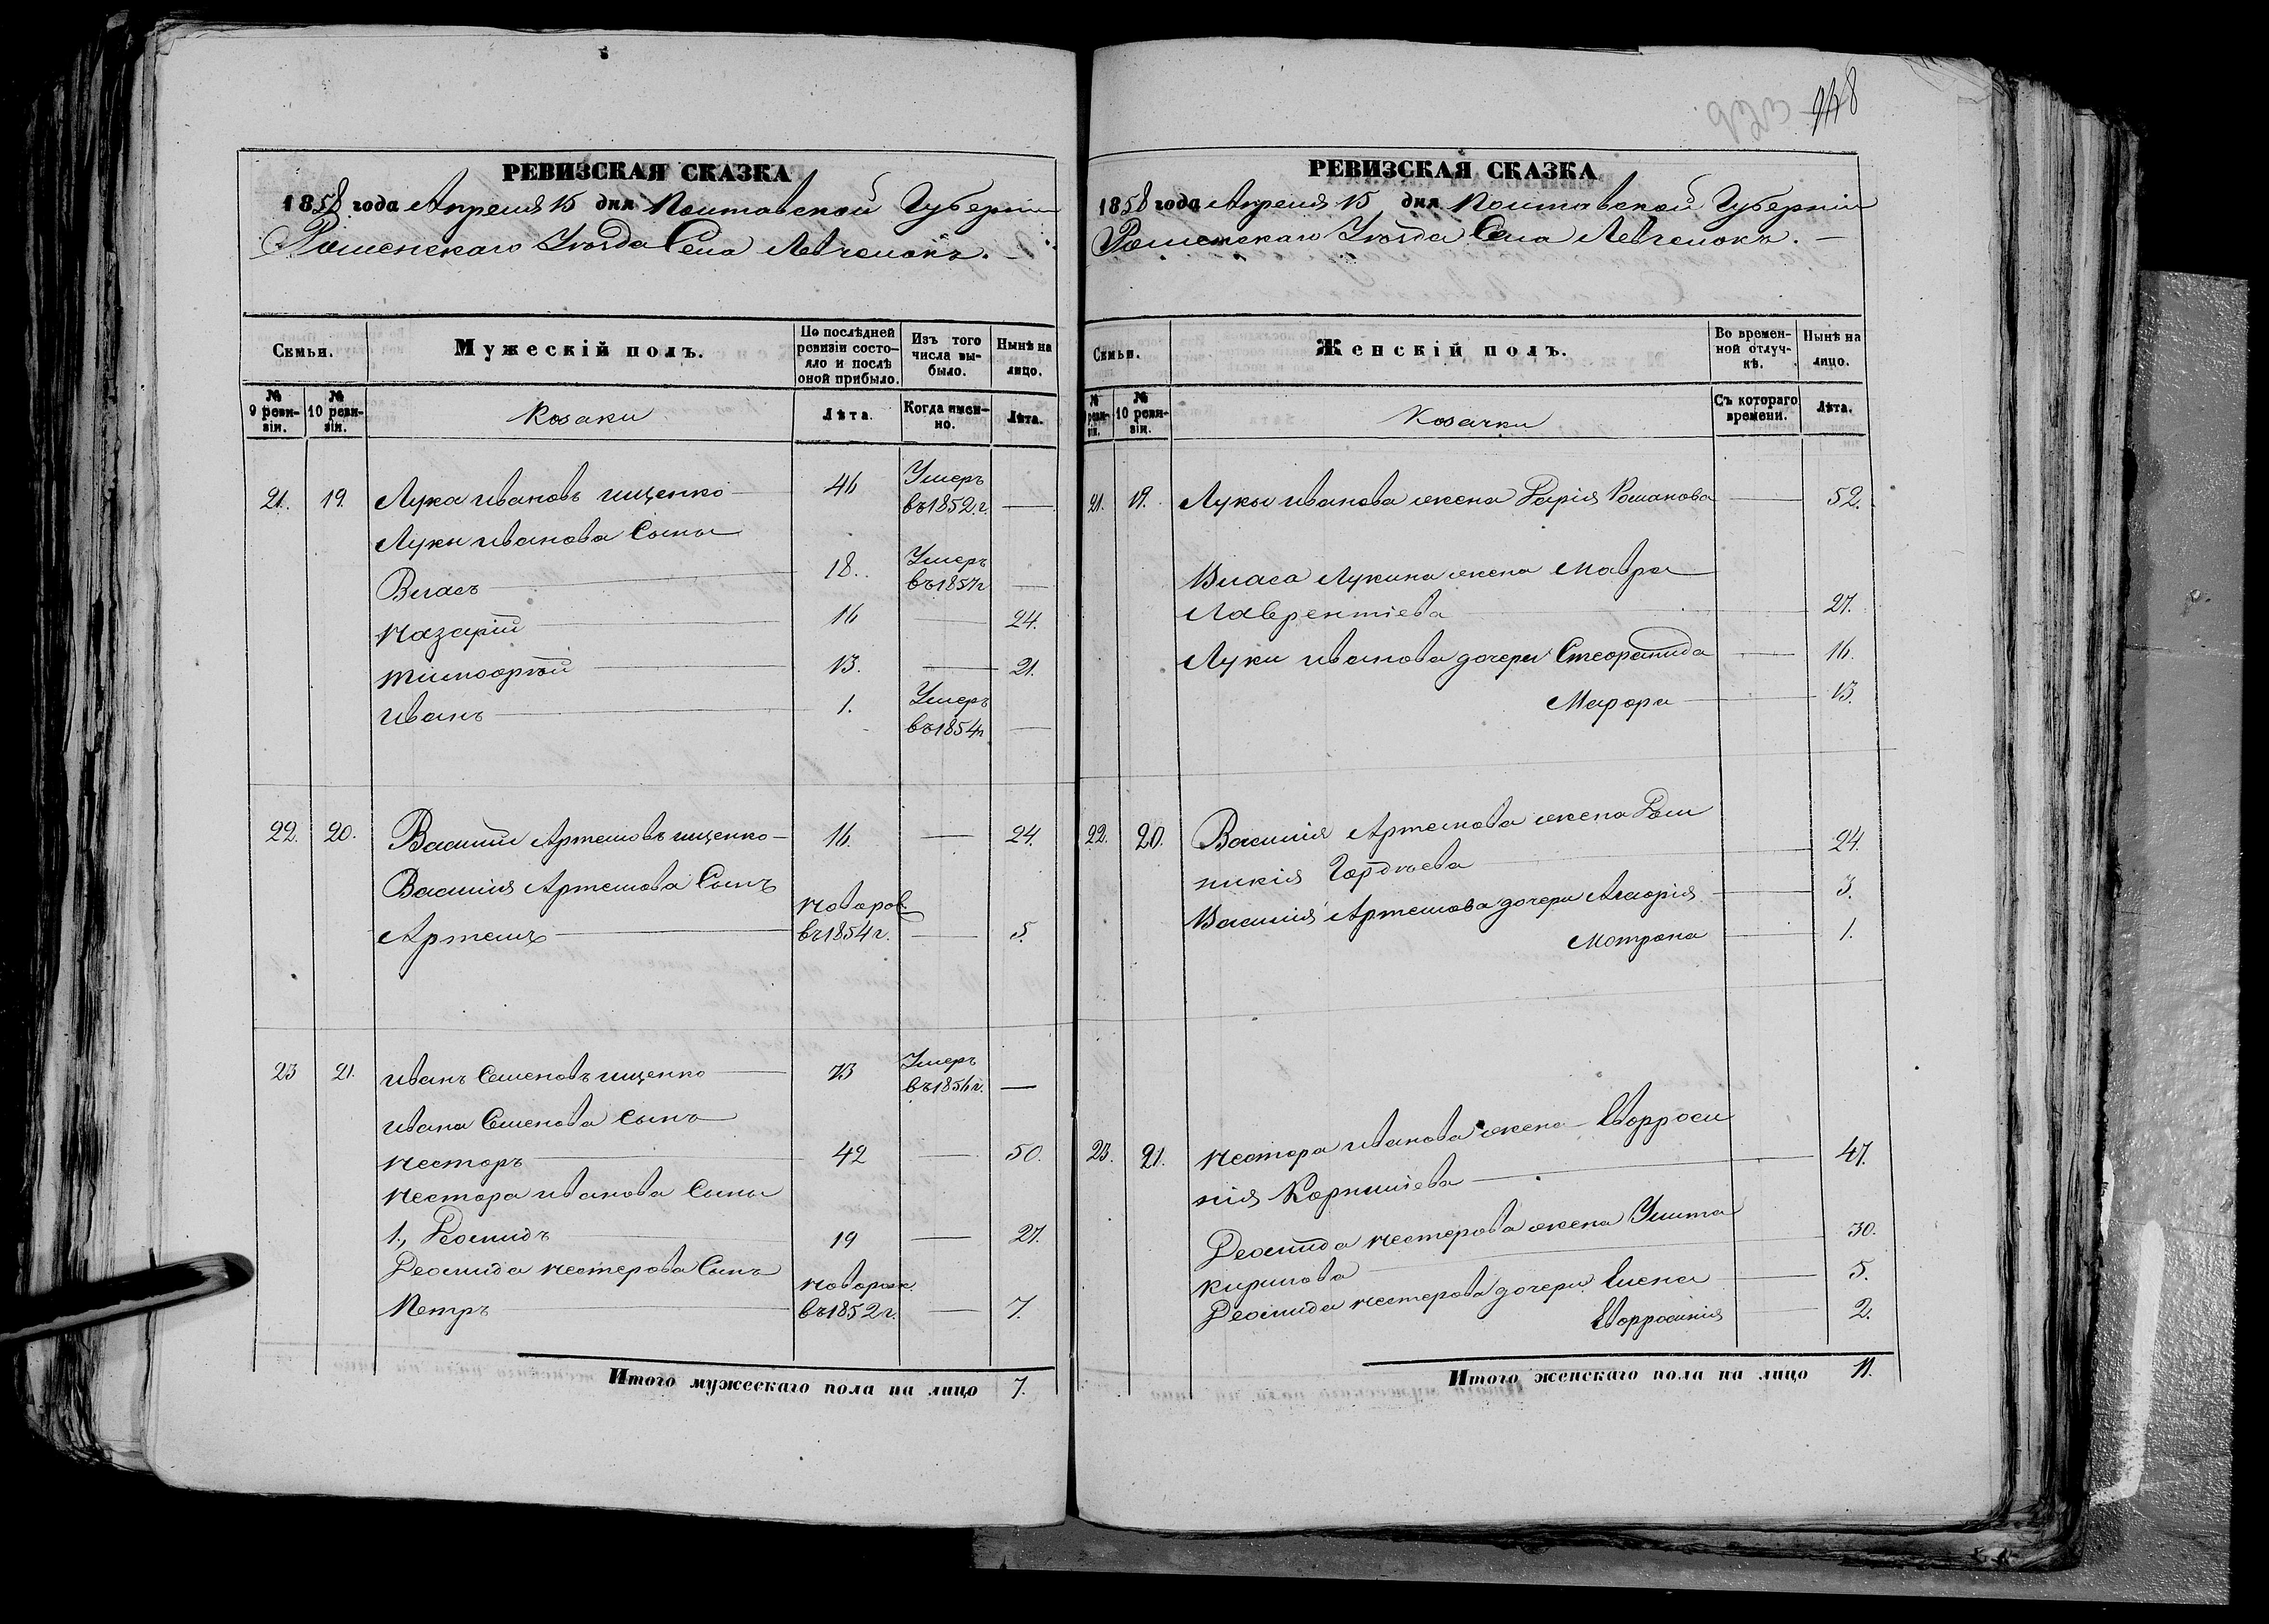 923 948
РЕВИЗСКАЯ СКАЗКА
1858 года Апреля 15 дня Полтавской Губерніи
Роменскаго Уѣзда Села Левченокъ.
Семьи.
Мужескій полъ.
По послѣдней ревизіи состояло и послѣ оной прибыло.
Изъ того числа выбыло.
Нынѣ на лицо.
№ 9 ревизіи.
№ 10 ревизіи.
Козаки
Лѣта.
Когда именно.
Лѣта.
21. 19. Лука Ивановъ Ищенко 46 Умеръ въ 1852 г. —
Луки Иванова Сыны
Власъ 18. Умеръ въ 1857 г. —
Назарій 16 — 24.
Тимофѣй 13. — 21.
Иванъ 1. Умеръ въ 1854 г. —
22. 20. Василій Артемовъ Ищенко 16. — 24.
Василія Артемова Сынъ
Артемъ новорож. въ 1854 г. — 5.
23 21. Иванъ Семеновъ Ищенко 73 Умеръ въ 1856 г. —
Ивана Семенова Сынъ
Несторъ 42 — 50.
Нестора Иванова Сыны
1., Леонидъ 19 — 27.
Леонида Нестерова Сынъ
Петръ новорож. въ 1852 г. — 7.
Итого мужескаго пола на лицо 7.
РЕВИЗСКАЯ СКАЗКА
1858 года Апреля 15 дня Полтавской Губерніи
Роменскаго Уѣзда Села Левченокъ.
Семьи.
Женскій полъ.
Во временной отлучкѣ.
Нынѣ на лицо.
№ 9 ревизіи.
№ 10 ревизіи.
Козачки
Съ котораго времени.
Лѣта.
21. 19. Луки Иванова жена Дарія Романова — 52.
Власа Лукина жена Мавра
Лаврентіева 27.
Луки Иванова дочери Стефанида — 16.
Марфа — 13.
22. 20. Василія Артемова жена Доми
никія Гордѣева 24.
Василія Артемова дочери — 3.
Мотрона — 1.
23. 21. Нестора Иванова жена Евфроси
нія Корниліева — 47.
Леонида Нестерова жена Улита
Кирилова 30.
Леонида Нестерова дочери Елена — 5.
Евфросинія — 2.
Итого женскаго пола на лицо 11.